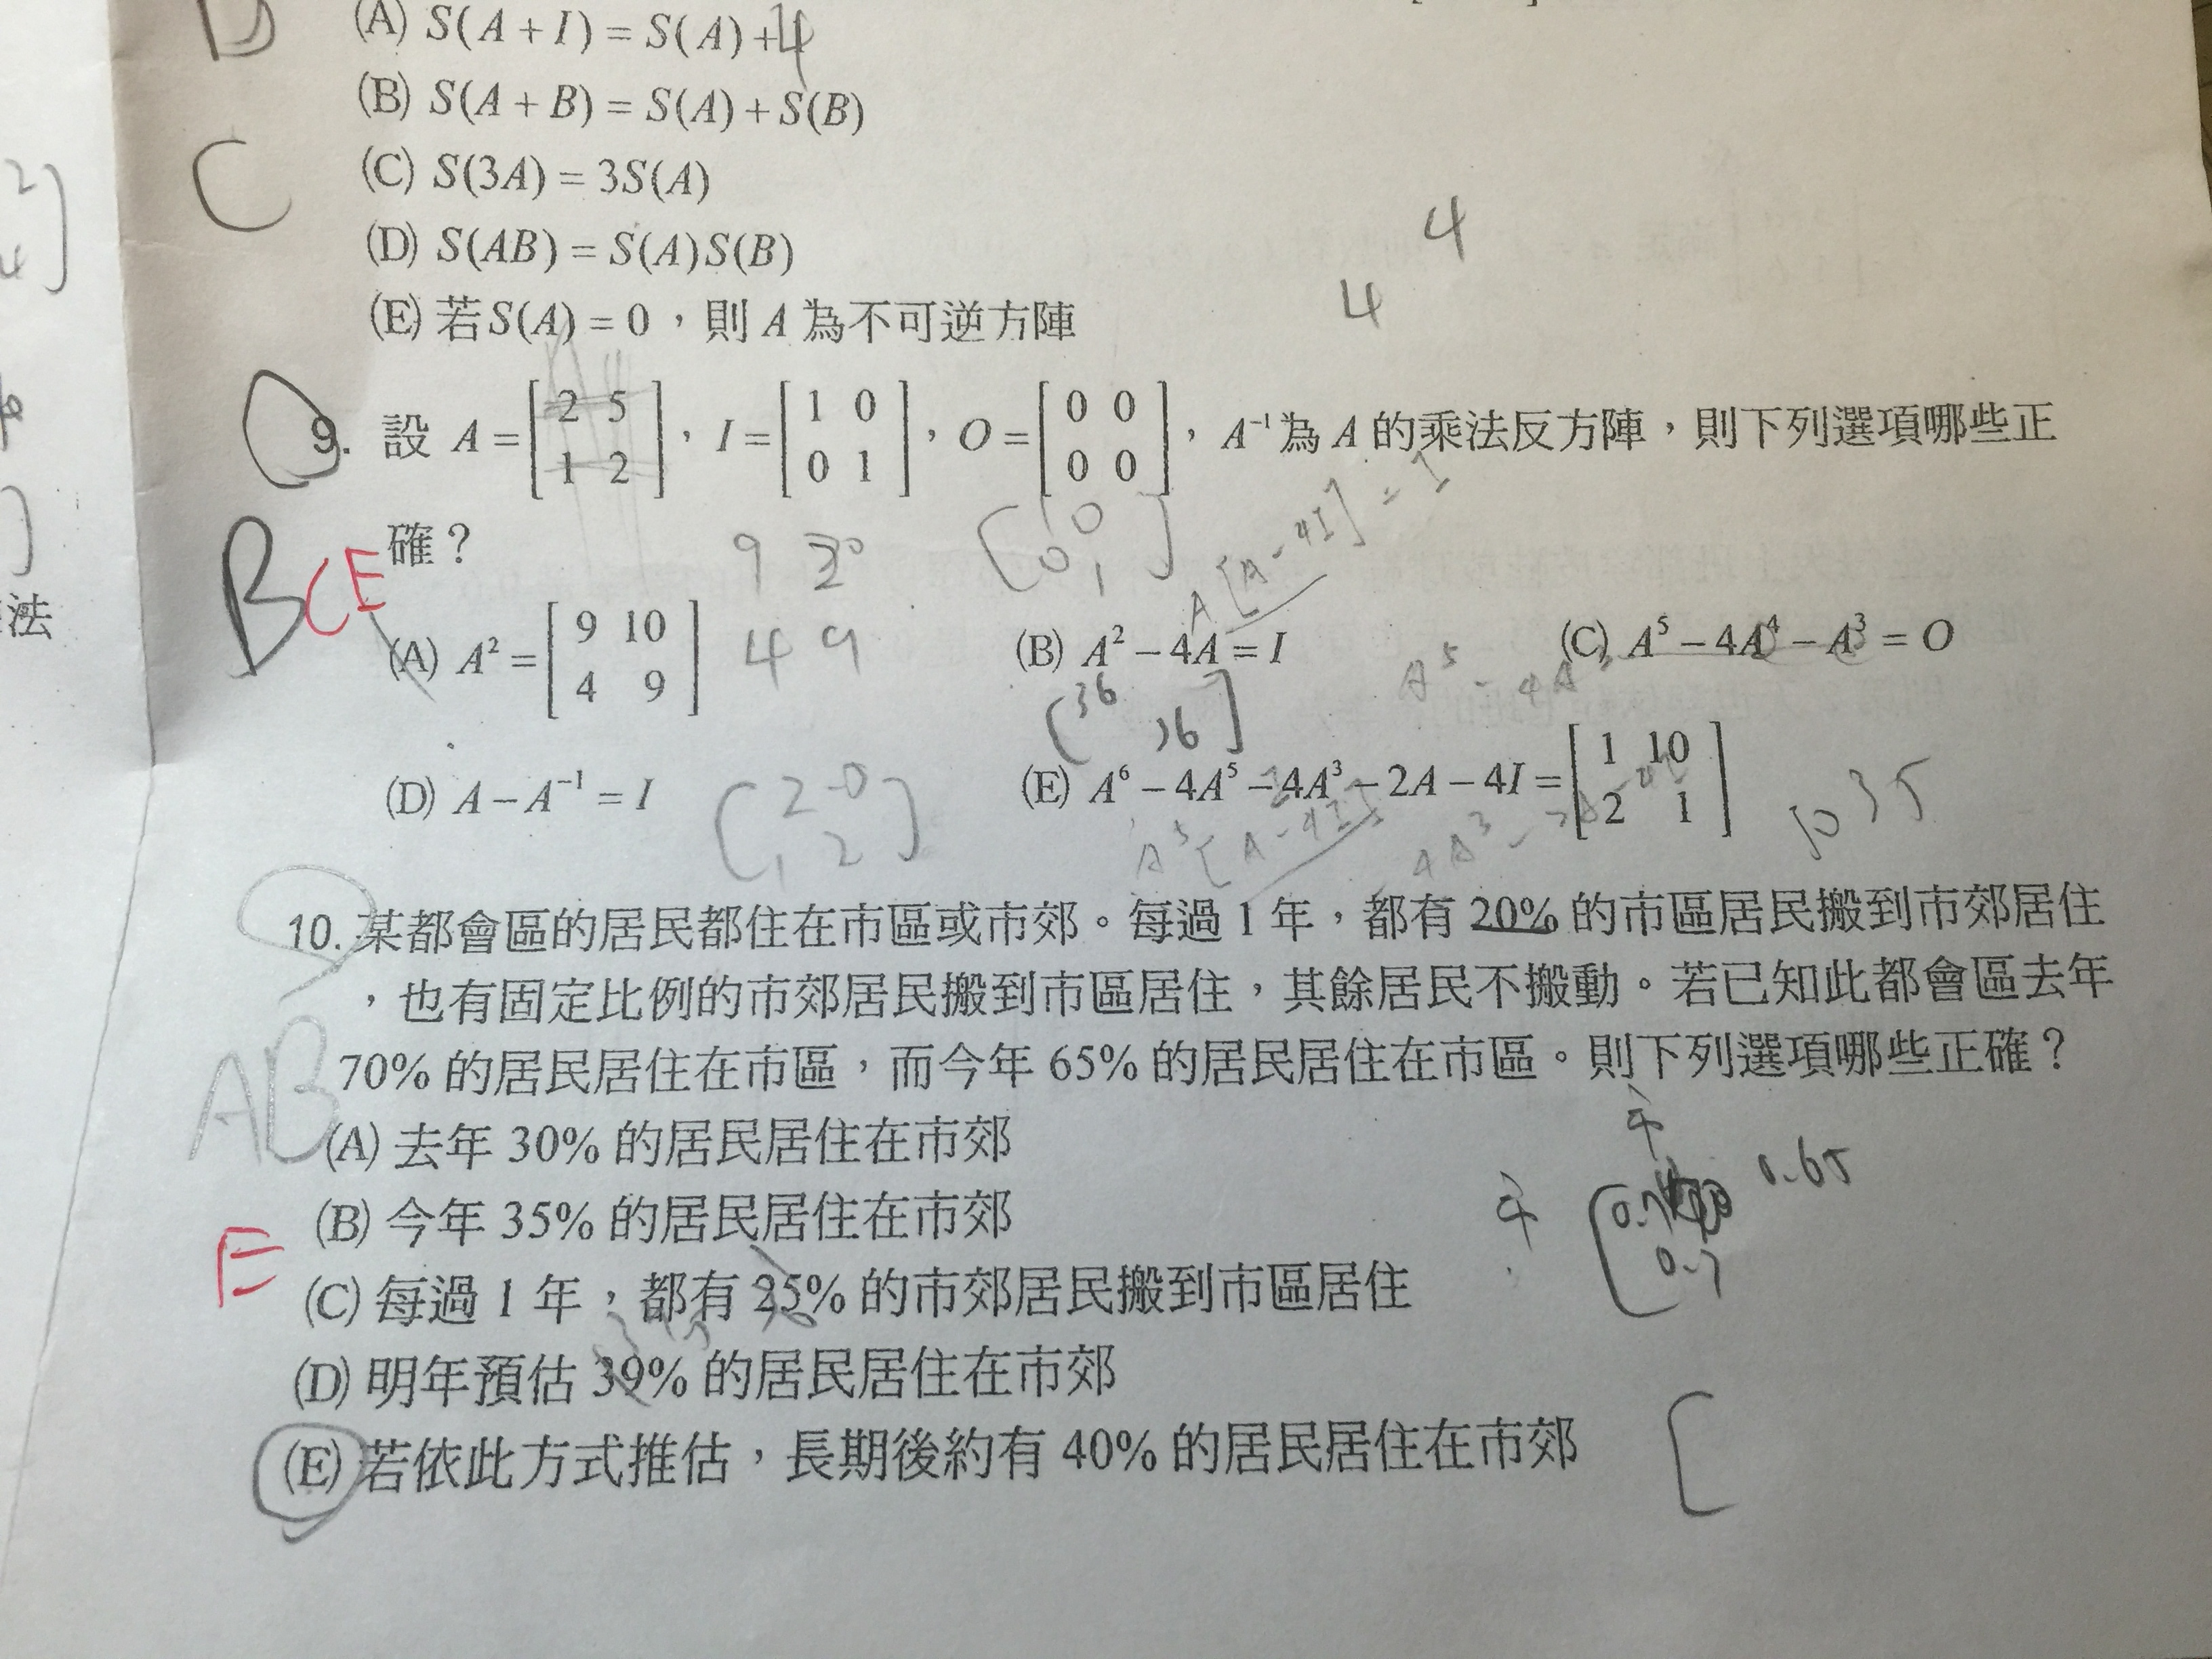 D
(A) S(A+I) = S(A)+4
(B) S(A+B) = S(A)+S(B)
C
(C) S(3A) = 3S(A)
(D) S(AB) = S(A)S(B)
4
4
(E) 若S(A) = 0，則 A 為不可逆方陣
9. 設 A = [2 5; 1 2]，I = [1 0; 0 1]，O = [0 0; 0 0]，A⁻¹為 A 的乘法反方陣，則下列選項哪些正
確？
BCE
[1 0; 0 1]
A[A-4I] = I
9 20
4 9
(A) A² = [9 10; 4 9] (B) A² − 4A = I (C) A⁵ − 4A⁴ − A³ = O
[36 36]
(D) A − A⁻¹ = I (E) A⁶ − 4A⁵ − 4A³ − 2A − 4I = [1 10; 2 1]
10. 某都會區的居民都住在市區或市郊。每過 1 年，都有 20% 的市區居民搬到市郊居住
，也有固定比例的市郊居民搬到市區居住，其餘居民不搬動。若已知此都會區去年
70% 的居民居住在市區，而今年 65% 的居民居住在市區。則下列選項哪些正確？
AB
(A) 去年 30% 的居民居住在市郊
0.65
(B) 今年 35% 的居民居住在市郊
0.7
E
(C) 每過 1 年，都有 25% 的市郊居民搬到市區居住
(D) 明年預估 39% 的居民居住在市郊
(E) 若依此方式推估，長期後約有 40% 的居民居住在市郊